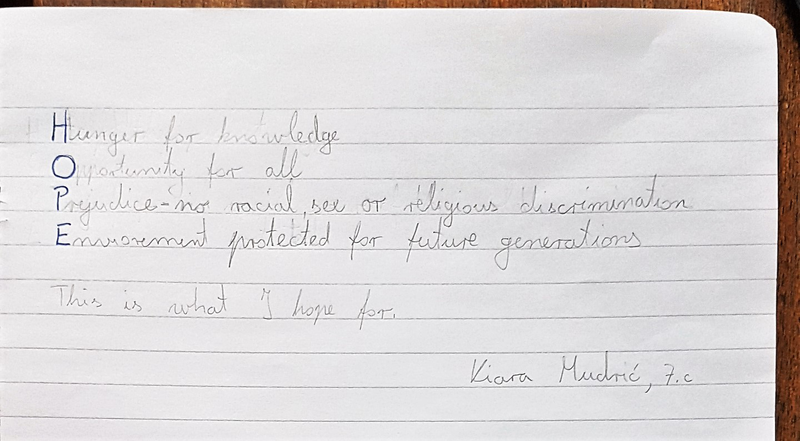 Hunger for knowledge
Opportunity for all
Prejudice-no racial, sex or religious discrimination
Enviorement protected for future generations
This is what I hope for.
Kiara Mudrić, 7.c